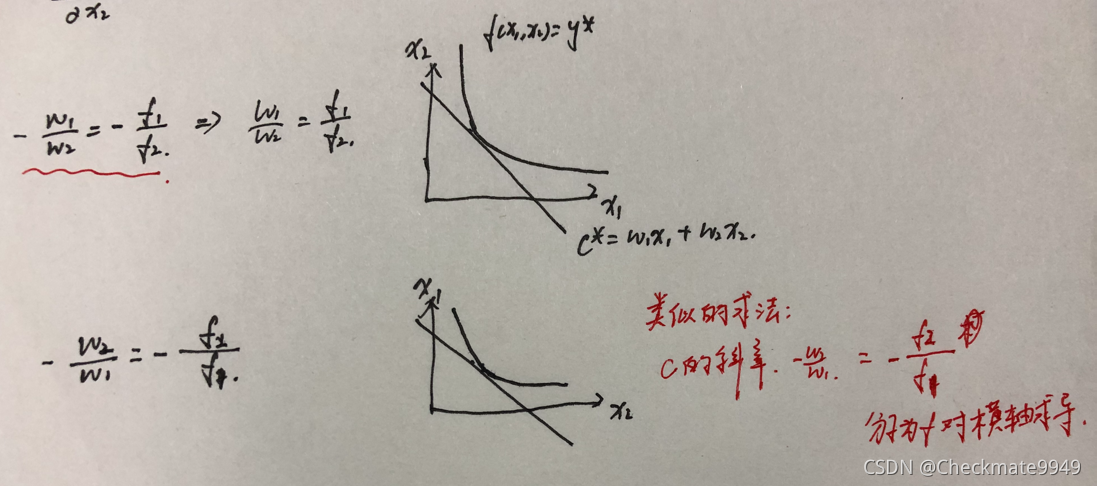 ∂x₂
f(x₁,x₂)=y*
x₂
-w₁/w₂=-f₁/f₂. ⇒ w₁/w₂=f₁/f₂.
x₁
c*=w₁x₁+w₂x₂.
x₁
-w₂/w₁=-f₂/f₁.
x₂
类似的求法:
C的斜率. -w₂/w₁. = -f₂/f₁
分子为f对横轴求导.
CSDN @Checkmate9949